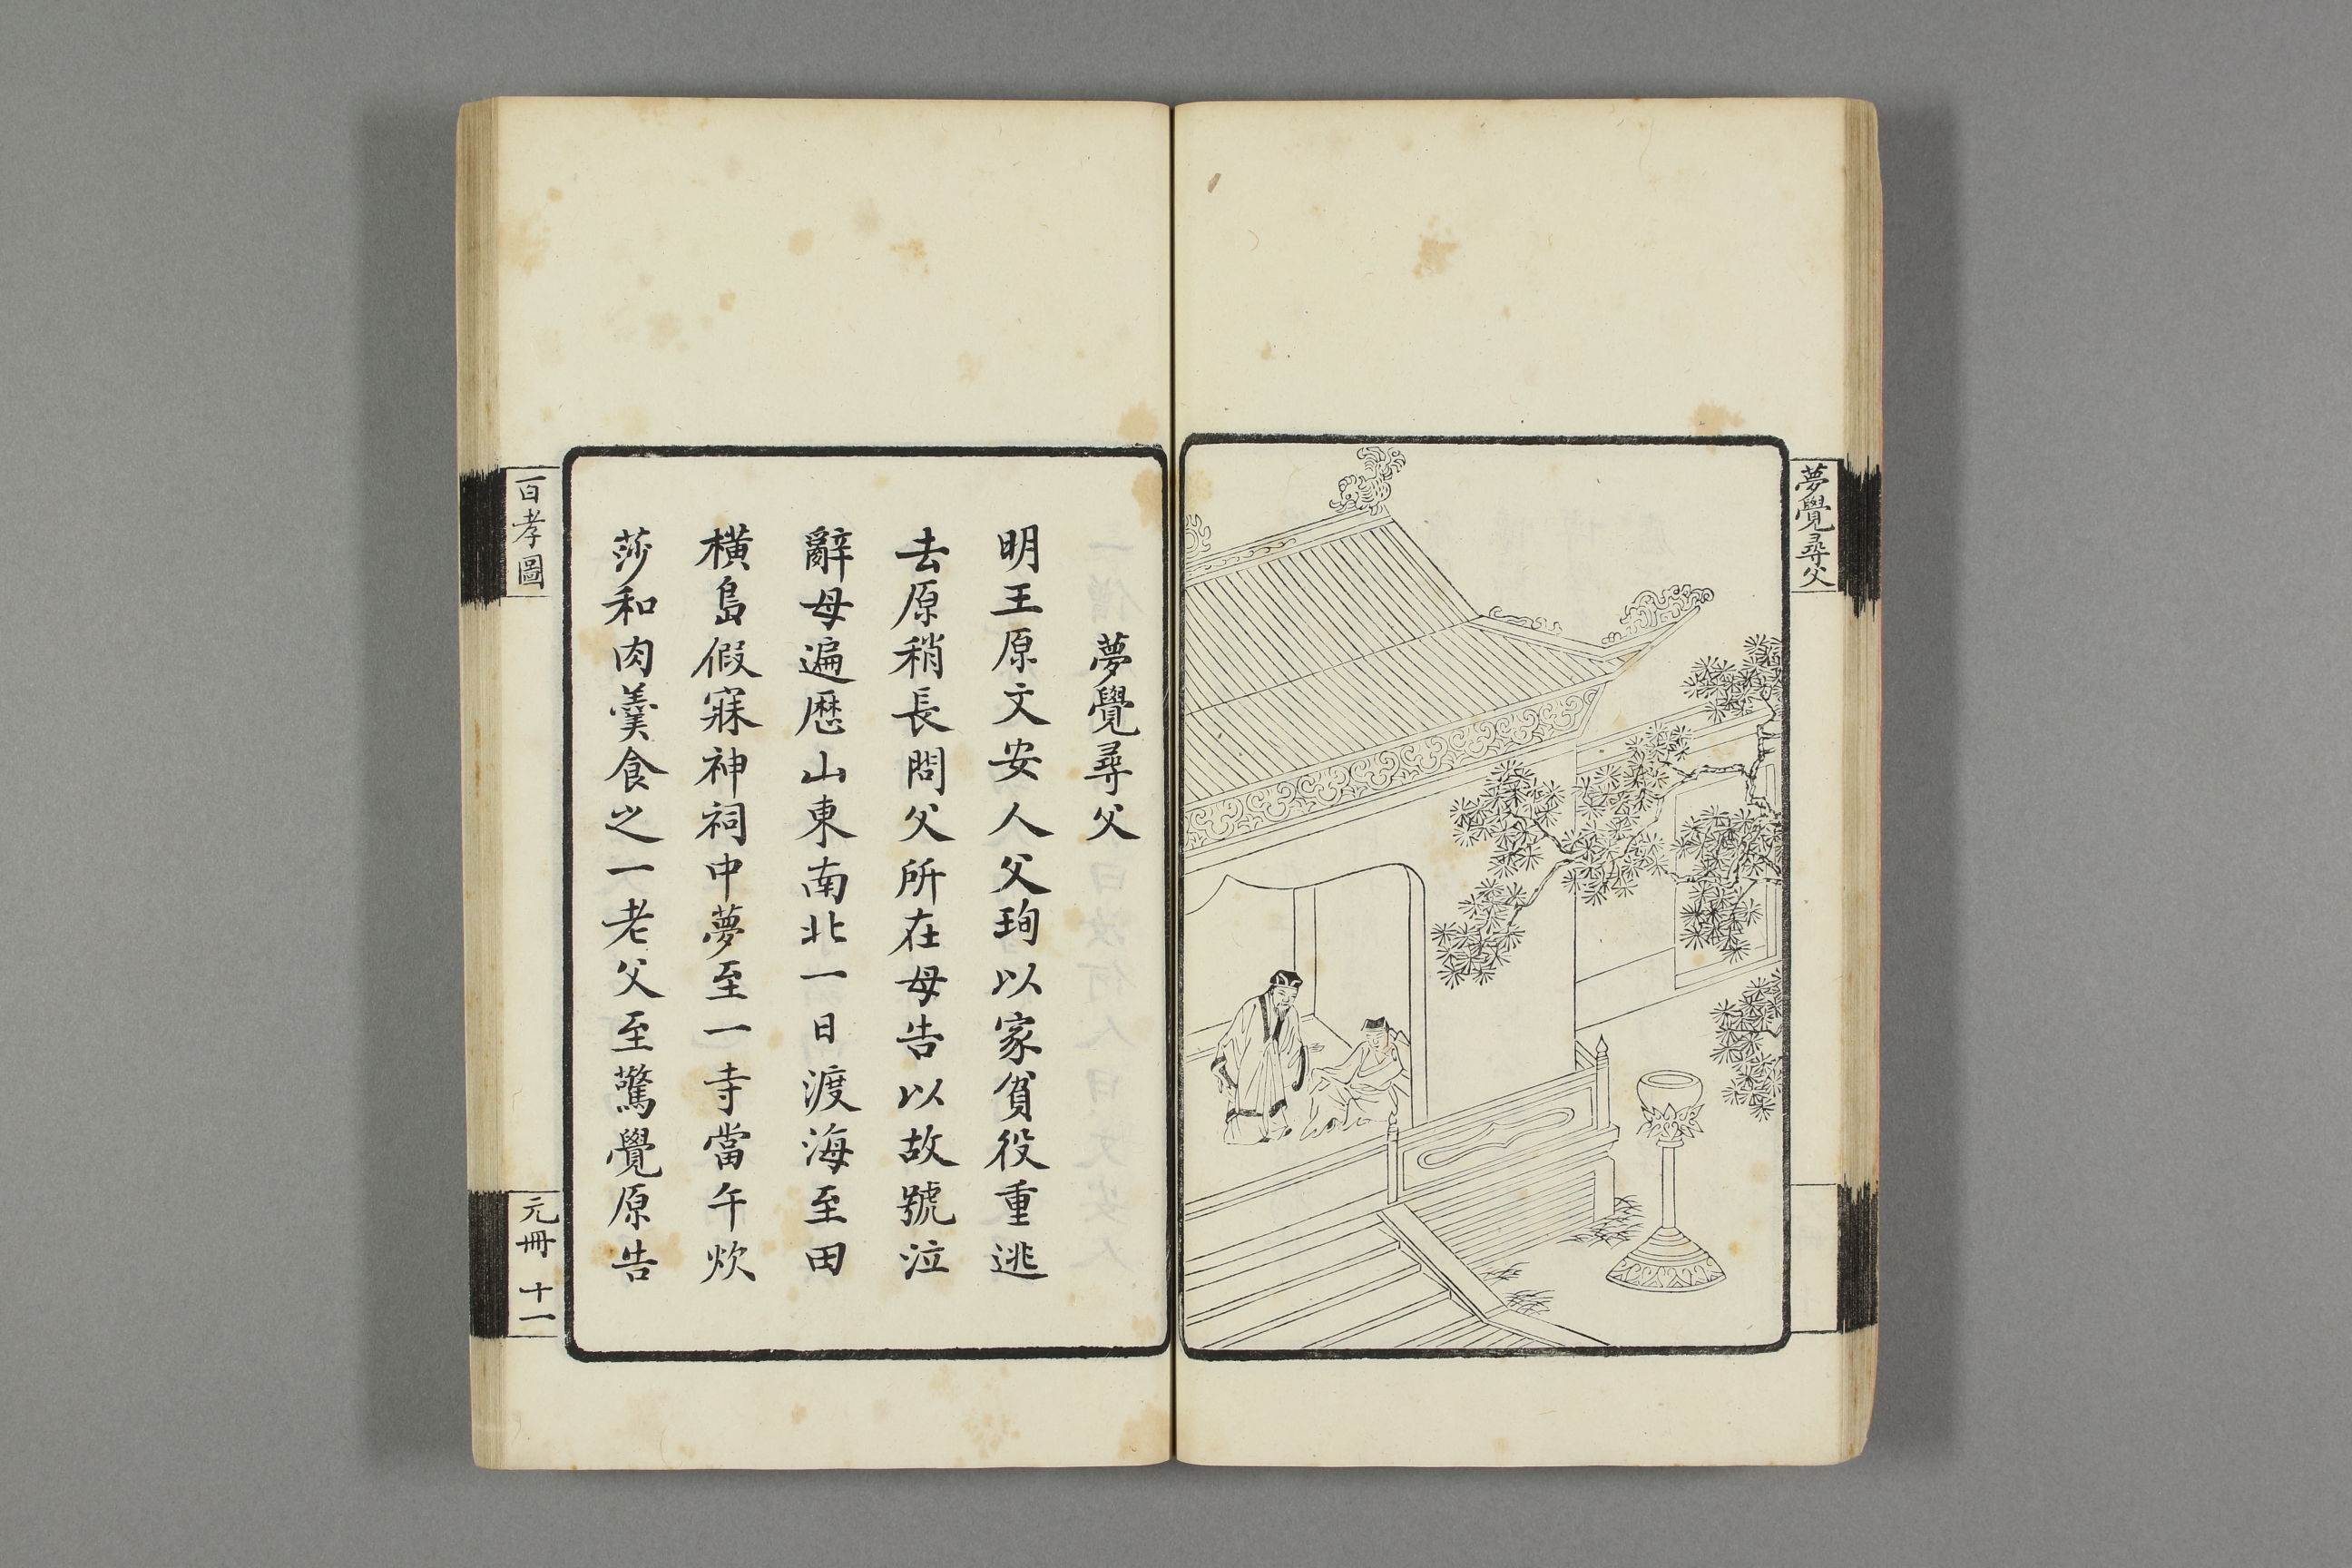 夢覺尋父
夢覺尋父
明王原文安人父珣以家貧役重逃
去原稍長問父所在母告以故號泣
辭母遍歷山東南北一日渡海至田
橫島假寐神祠中夢至一寺當午炊
莎和肉羹食之一老父至驚覺原告
百孝圖
元冊 十一